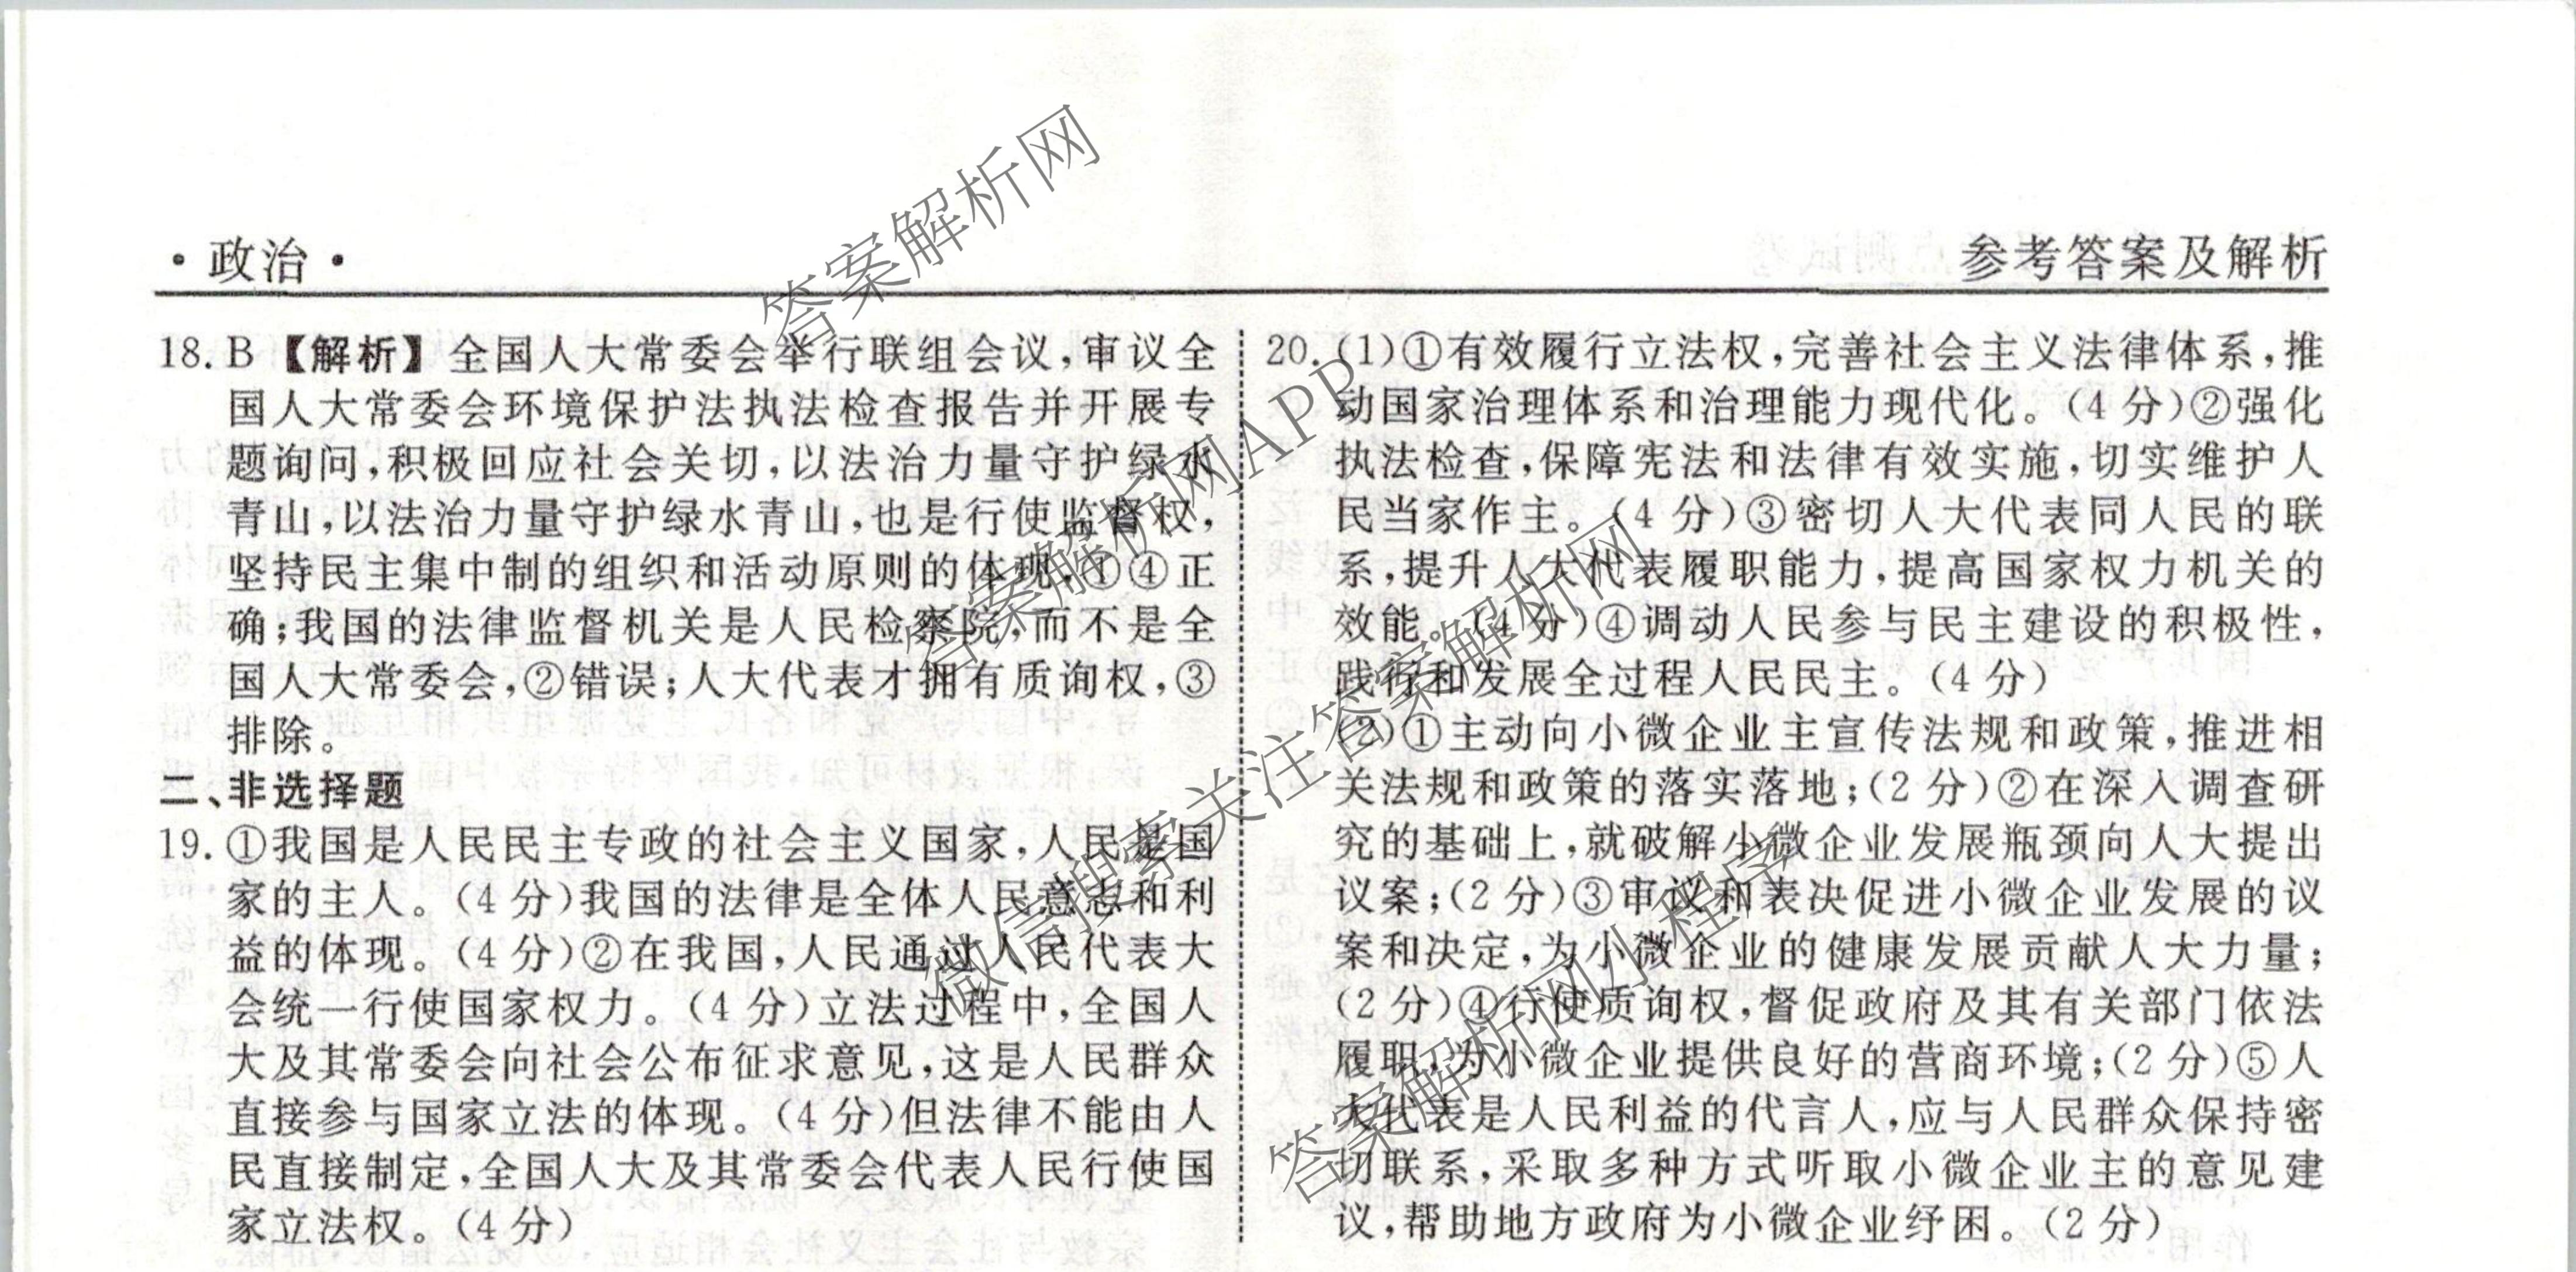 ·政治·
参考答案及解析
18. B【解析】全国人大常委会举行联组会议,审议全
国人大常委会环境保护法执法检查报告并开展专
题询问,积极回应社会关切,以法治力量守护绿水
青山,以法治力量守护绿水青山,也是行使监督权,
坚持民主集中制的组织和活动原则的体现,①④正
确;我国的法律监督机关是人民检察院,而不是全
国人大常委会,②错误;人大代表才拥有质询权,③
排除。
二、非选择题
19. ①我国是人民民主专政的社会主义国家,人民是国
家的主人。(4分)我国的法律是全体人民意志和利
益的体现。(4分)②在我国,人民通过人民代表大
会统一行使国家权力。(4分)立法过程中,全国人
大及其常委会向社会公布征求意见,这是人民群众
直接参与国家立法的体现。(4分)但法律不能由人
民直接制定,全国人大及其常委会代表人民行使国
家立法权。(4分)
20. (1)①有效履行立法权,完善社会主义法律体系,推
动国家治理体系和治理能力现代化。(4分)②强化
执法检查,保障宪法和法律有效实施,切实维护人
民当家作主。(4分)③密切人大代表同人民的联
系,提升人大代表履职能力,提高国家权力机关的
效能。(4分)④调动人民参与民主建设的积极性,
践行和发展全过程人民民主。(4分)
(2)①主动向小微企业主宣传法规和政策,推进相
关法规和政策的落实落地;(2分)②在深入调查研
究的基础上,就破解小微企业发展瓶颈向人大提出
议案;(2分)③审议和表决促进小微企业发展的议
案和决定,为小微企业的健康发展贡献人大力量;
(2分)④行使质询权,督促政府及其有关部门依法
履职,为小微企业提供良好的营商环境;(2分)⑤人
大代表是人民利益的代言人,应与人民群众保持密
切联系,采取多种方式听取小微企业主的意见建
议,帮助地方政府为小微企业纾困。(2分)
答案解析网
答案解析网APP
微信搜索关注答案解析网
答案解析网小程序